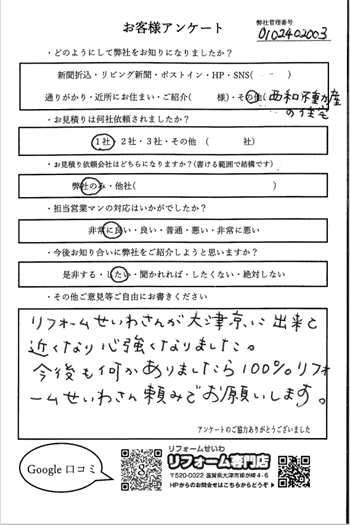 お客様アンケート
弊社管理番号
0102402003
・どのようにして弊社をお知りになりましたか？
新聞折込・リビング新聞・ポストイン・HP・SNS( )
通りがかり・近所にお住まい・ご紹介( 様)・その他(西和不動産
の住宅
・お見積りは何社依頼されましたか？
1社・2社・3社・その他 ( 社)
・お見積り依頼会社はどちらになりますか？(書ける範囲で結構です)
弊社のみ・他社( )
・担当営業マンの対応はいかがでしたか？
非常に良い・良い・普通・悪い・非常に悪い
・今後お知り合いに弊社をご紹介しようと思いますか？
是非する・したい・聞かれれば・したくない・絶対しない
・その他ご意見等ご自由にお書きください
リフォームせいわさんが大津京に出来て
近くなり心強くなりました。
今後も何かありましたら100%リフォ
ームせいわさん頼みでお願いします。
アンケートのご協力ありがとうございました
Google 口コミ
リフォームせいわ
リフォーム専門店
〒520-0022 滋賀県大津市柳が崎4-6
HPからのお問合せはこちらからどうぞ